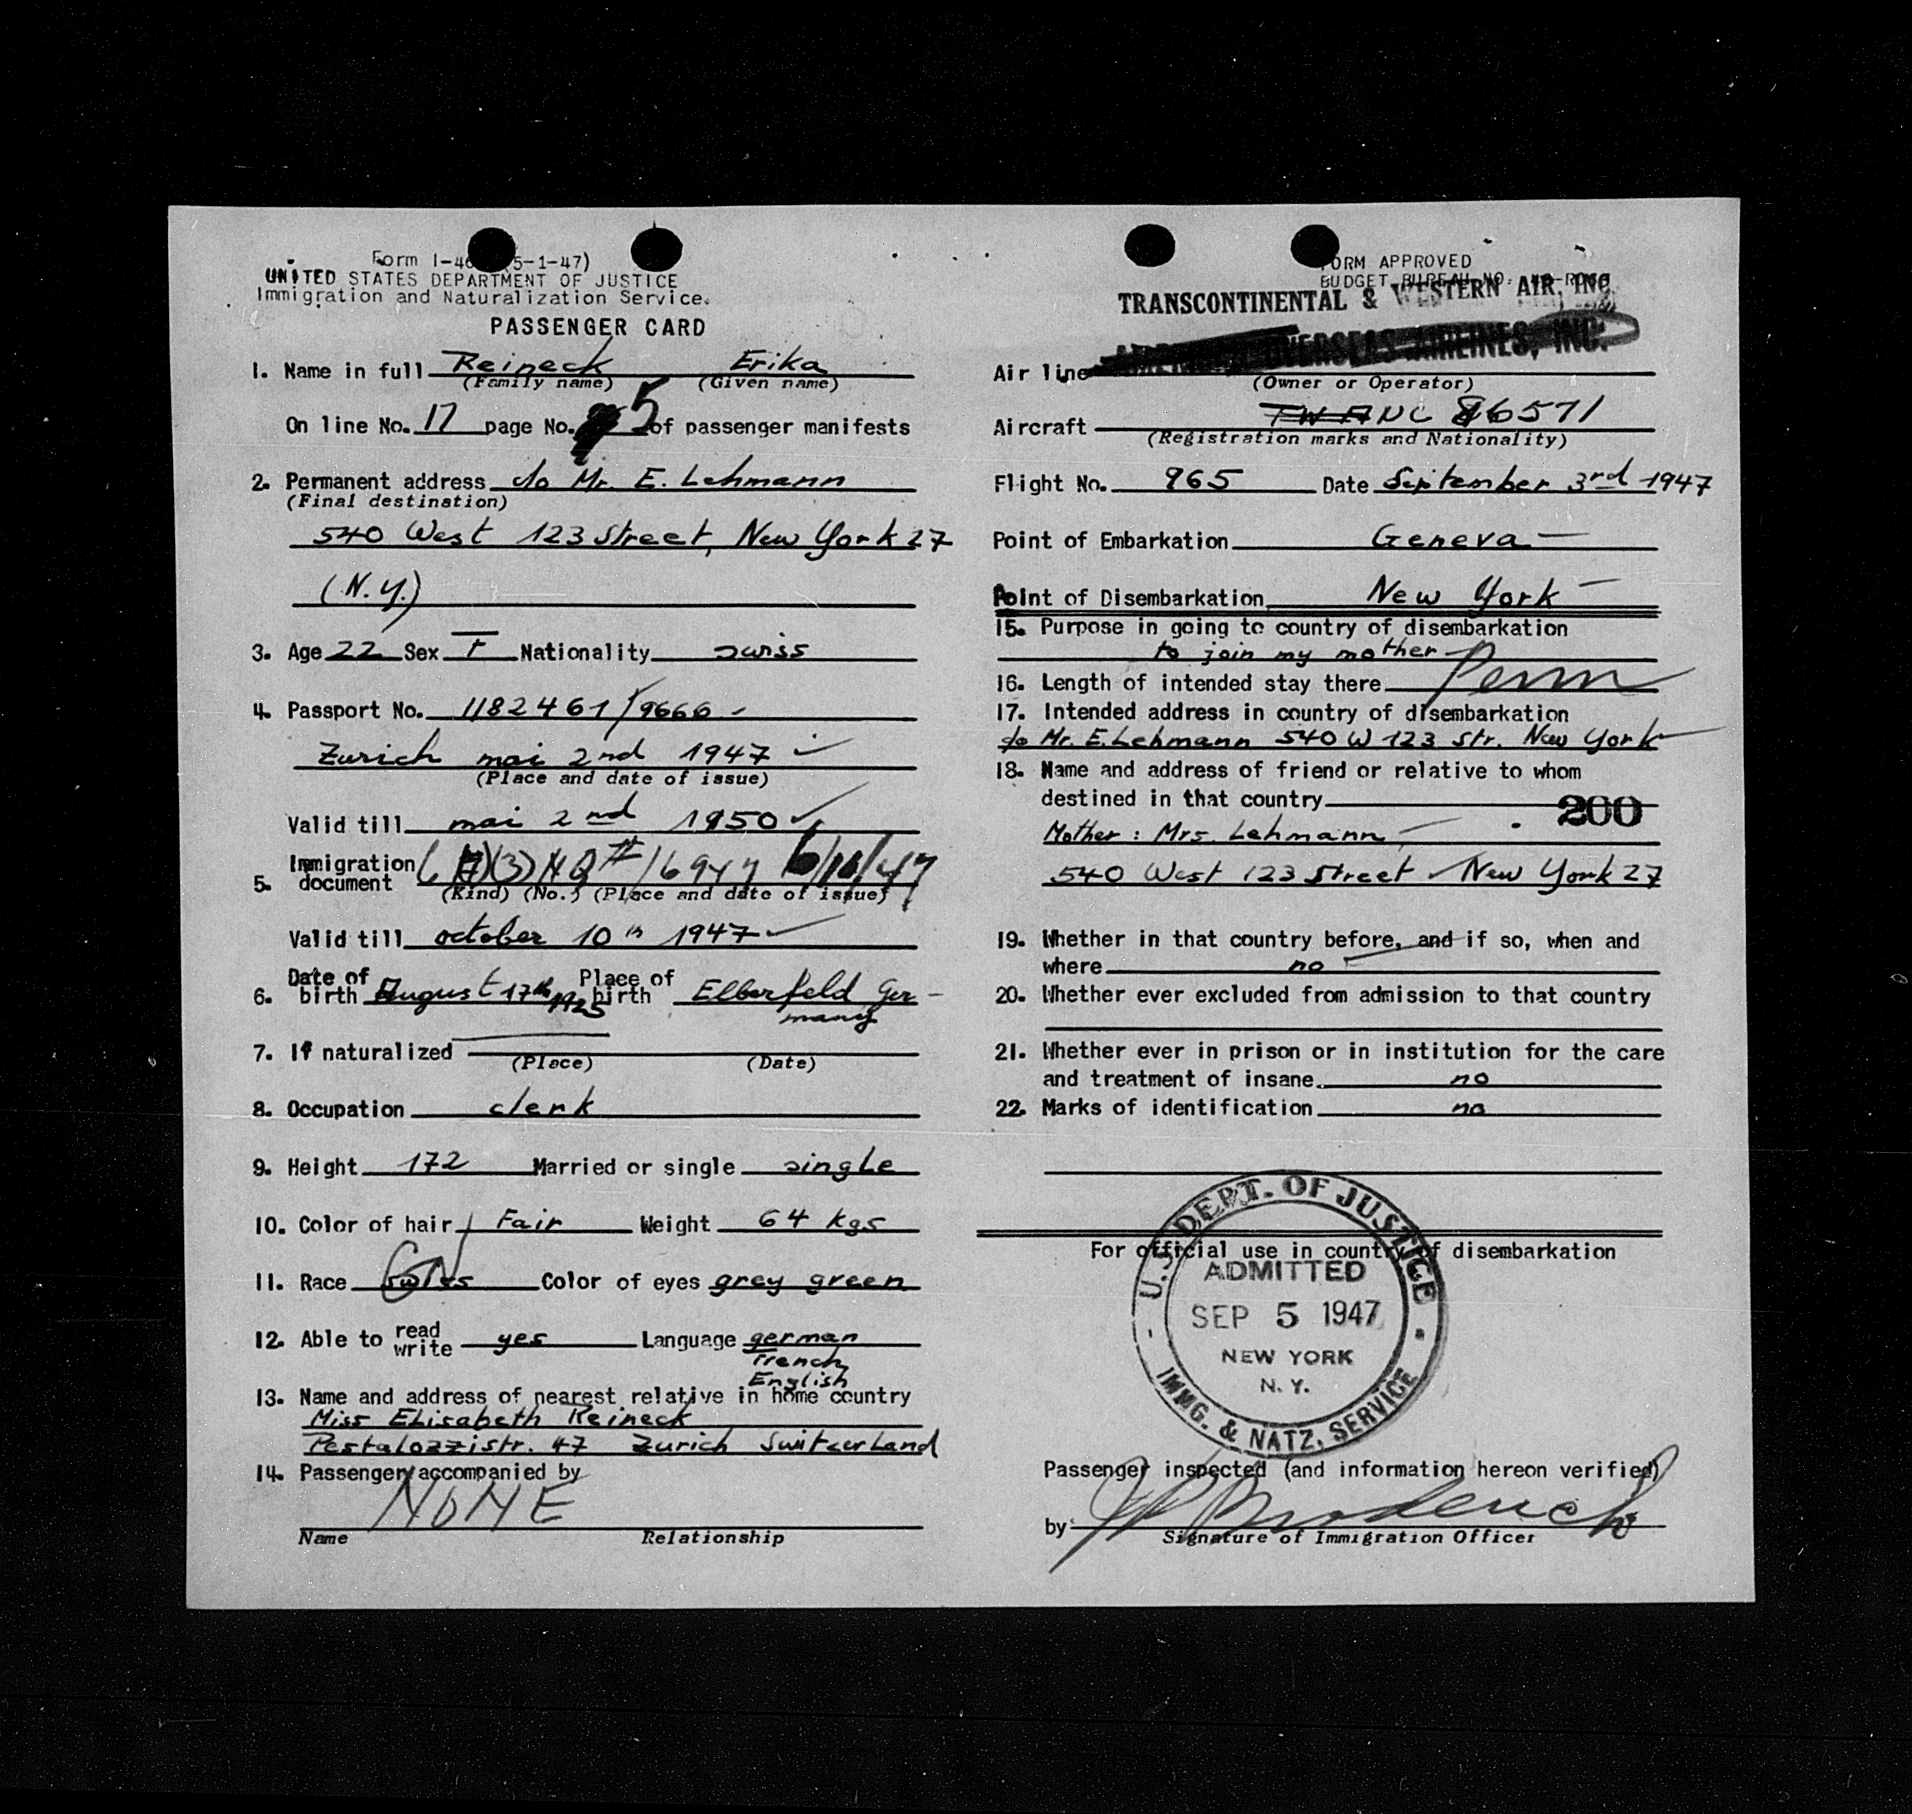 Form I-46 (5-1-47)
UNITED STATES DEPARTMENT OF JUSTICE
Immigration and Naturalization Service.
PASSENGER CARD
1. Name in full Reineck Erika
(Family name) (Given name)
On line No. 17 page No. 5 of passenger manifests
2. Permanent address c/o Mr. E. Lehmann
(Final destination)
540 West 123 Street, New York 27
(N.Y.)
3. Age 22 Sex F Nationality swiss
4. Passport No. 1182461/9666
Zurich mai 2nd 1947
(Place and date of issue)
Valid till mai 2nd 1950
5. Immigration document (3) NQ # 16947 6/10/47
(Kind) (No.) (Place and date of issue)
Valid till october 10th 1947
6. Date of birth August 17th 1925 Place of birth Elberfeld Ger-
many
7. If naturalized
(Place) (Date)
8. Occupation clerk
9. Height 172 Married or single single
10. Color of hair Fair Weight 64 kgs
11. Race swiss Color of eyes grey green
12. Able to read write yes Language german
French
English
13. Name and address of nearest relative in home country
Miss Elisabeth Reineck
Pestalozzistr. 47 Zurich Switzerland
14. Passenger accompanied by
NONE
Name Relationship
FORM APPROVED
BUDGET BUREAU NO.
TRANSCONTINENTAL & WESTERN AIR, INC.
OVERSEAS AIRLINES, INC.
Air line
(Owner or Operator)
Aircraft TWA NC 86571
(Registration marks and Nationality)
Flight No. 965 Date September 3rd 1947
Point of Embarkation Geneva
Point of Disembarkation New York
15. Purpose in going to country of disembarkation
to join my mother
16. Length of intended stay there Perm
17. Intended address in country of disembarkation
c/o Mr. E. Lehmann 540 W 123 Str. New York
18. Name and address of friend or relative to whom
destined in that country
200
Mother: Mrs. Lehmann
540 West 123 Street New York 27
19. Whether in that country before, and if so, when and
where no
20. Whether ever excluded from admission to that country
21. Whether ever in prison or in institution for the care
and treatment of insane. no
22. Marks of identification no
For official use in country of disembarkation
U.S. DEPT. OF JUSTICE
ADMITTED
SEP 5 1947
NEW YORK
N. Y.
IMMG. & NATZ. SERVICE
Passenger inspected (and information hereon verified)
by
Signature of Immigration Officer